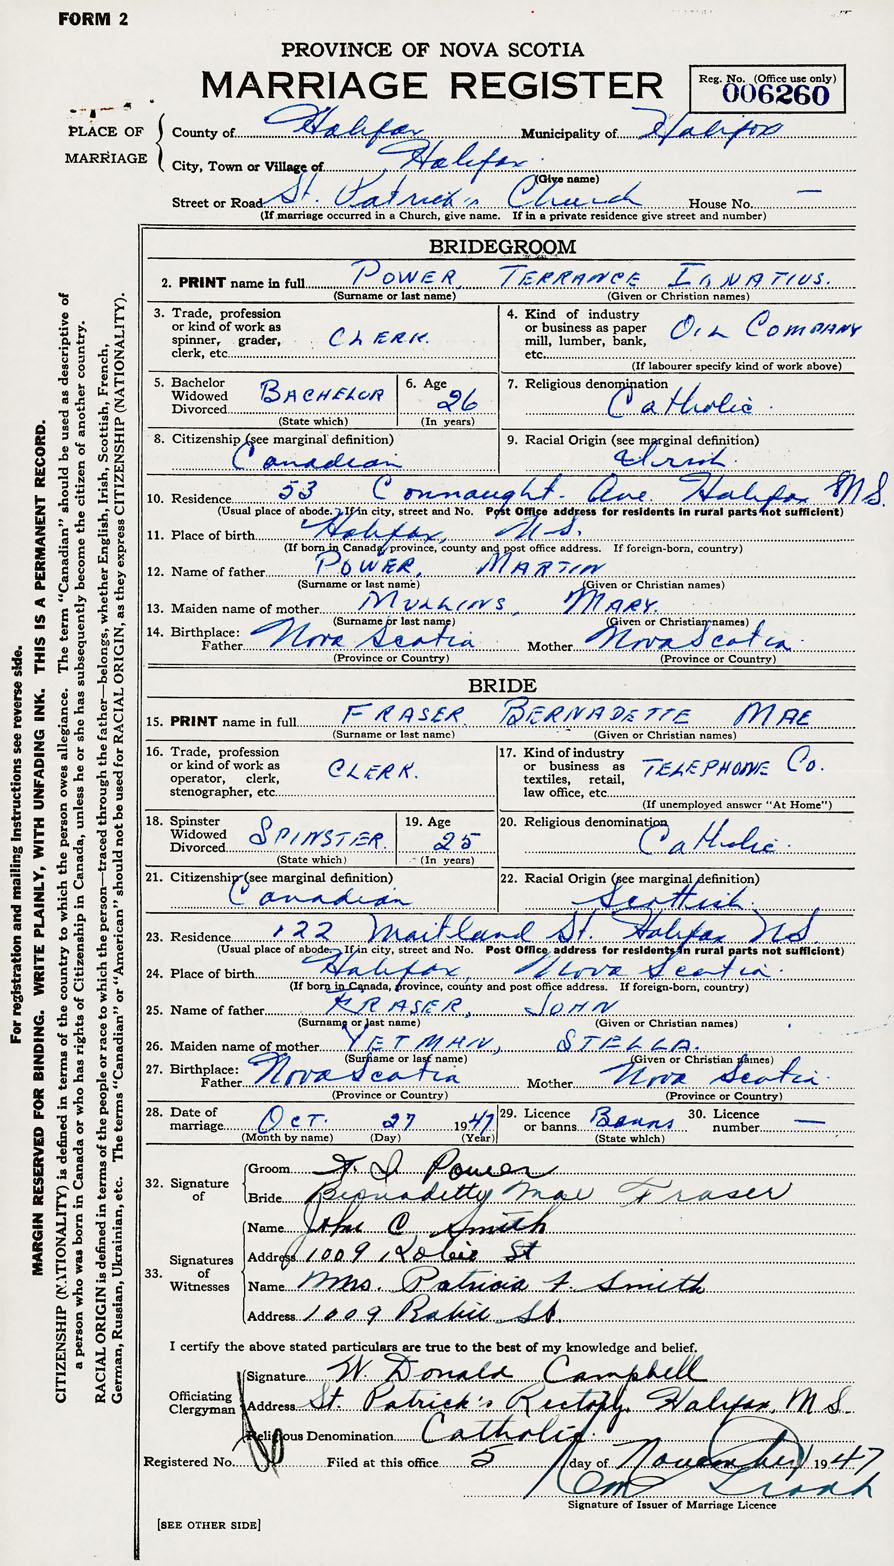 FORM 2
PROVINCE OF NOVA SCOTIA
MARRIAGE REGISTER
Reg. No. (Office use only)
006260
PLACE OF MARRIAGE
County of Halifax Municipality of Halifax
City, Town or Village of Halifax
(Give name)
Street or Road St. Patrick's Church House No. —
(If marriage occurred in a Church, give name. If in a private residence give street and number)
BRIDEGROOM
2. PRINT name in full POWER, TERRANCE IGNATIUS.
(Surname or last name) (Given or Christian names)
3. Trade, profession or kind of work as spinner, grader, clerk, etc. CLERK.
4. Kind of industry or business as paper mill, lumber, bank, etc. OIL COMPANY
(If labourer specify kind of work above)
5. Bachelor Widowed Divorced BACHELOR
(State which)
6. Age 26
(In years)
7. Religious denomination Catholic.
8. Citizenship (see marginal definition) Canadian
9. Racial Origin (see marginal definition) Irish.
10. Residence 53 Connaught Ave. Halifax N.S.
(Usual place of abode. If in city, street and No. Post Office address for residents in rural parts not sufficient)
11. Place of birth Halifax, N.S.
(If born in Canada, province, county and post office address. If foreign-born, country)
12. Name of father POWER, MARTIN
(Surname or last name) (Given or Christian names)
13. Maiden name of mother MULLINS, MARY.
(Surname or last name) (Given or Christian names)
14. Birthplace: Father Nova Scotia Mother Nova Scotia.
(Province or Country) (Province or Country)
BRIDE
15. PRINT name in full FRASER, BERNADETTE MAE
(Surname or last name) (Given or Christian names)
16. Trade, profession or kind of work as operator, clerk, stenographer, etc. CLERK.
17. Kind of industry or business as textiles, retail, law office, etc. TELEPHONE CO.
(If unemployed answer "At Home")
18. Spinster Widowed Divorced SPINSTER.
(State which)
19. Age 25
(In years)
20. Religious denomination Catholic.
21. Citizenship (see marginal definition) Canadian
22. Racial Origin (see marginal definition) Scottish.
23. Residence 122 Maitland St. Halifax N.S.
(Usual place of abode. If in city, street and No. Post Office address for residents in rural parts not sufficient)
24. Place of birth Halifax, Nova Scotia.
(If born in Canada, province, county and post office address. If foreign-born, country)
25. Name of father FRASER, JOHN
(Surname or last name) (Given or Christian names)
26. Maiden name of mother YETMAN, STELLA.
(Surname or last name) (Given or Christian names)
27. Birthplace: Father Nova Scotia Mother Nova Scotia.
(Province or Country) (Province or Country)
28. Date of marriage OCT. 27 1947
(Month by name) (Day) (Year)
29. Licence or banns Banns
(State which)
30. Licence number —
32. Signature of
Groom T. I. Power
Bride Bernadette Mae Fraser
33. Signatures of Witnesses
Name John C. Smith
Address 1009 Robie St
Name Mrs. Patricia F. Smith
Address 1009 Robie St.
I certify the above stated particulars are true to the best of my knowledge and belief.
Officiating Clergyman
Signature W. Donald Campbell
Address St. Patrick's Rectory, Halifax, N.S.
Religious Denomination Catholic.
Registered No. Filed at this office 5 day of November 1947
Signature of Issuer of Marriage Licence
[SEE OTHER SIDE]
For registration and mailing instructions see reverse side.
MARGIN RESERVED FOR BINDING. WRITE PLAINLY, WITH UNFADING INK. THIS IS A PERMANENT RECORD.
CITIZENSHIP (NATIONALITY) is defined in terms of the country to which the person owes allegiance. The term "Canadian" should be used as descriptive of
a person who was born in Canada or who has rights of Citizenship in Canada, unless he or she has subsequently become the citizen of another country.
RACIAL ORIGIN is defined in terms of the people or race to which the person—traced through the father—belongs, whether English, Irish, Scottish, French,
German, Russian, Ukrainian, etc. The terms "Canadian" or "American" should not be used for RACIAL ORIGIN, as they express CITIZENSHIP (NATIONALITY).